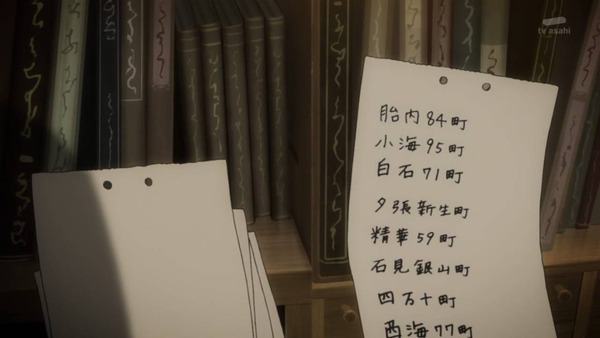 tv asahi
胎内84町
小海95町
白石71町
夕張新生町
精華59町
石見銀山町
四万十町
西海77町